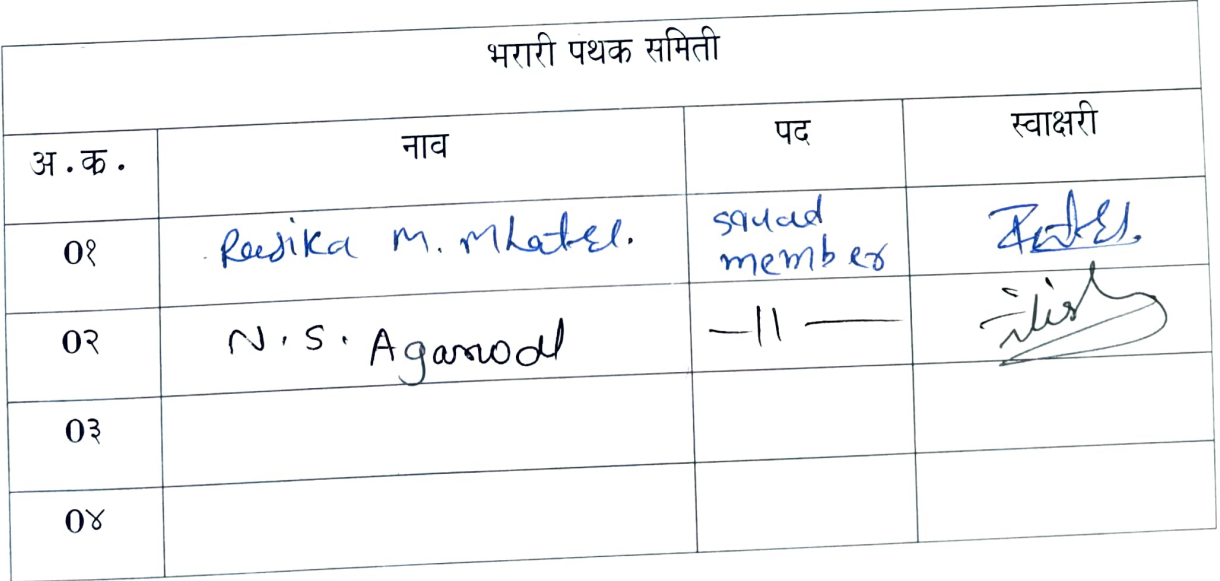 भरारी पथक समिती
अ.क. नाव पद स्वाक्षरी
०१ Rasika M. Mhatre. squad member
०२ N.S. Agarwal —11—
०३
०४